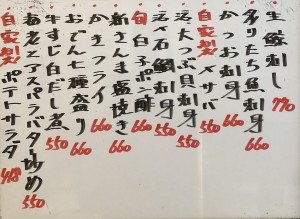 生鯨刺し 770
太刀魚刺身 660
かつお刺身 660
自家製〆サバ 550
活大つぶ貝刺身 550
活〆石鯛刺身 660
旬白子ポン酢 660
新さんま塩焼き 660
かきフライ 660
おでん七種盛り 660
牛すじ白だし煮 550
海老とアスパラバター炒め 550
自家製ポテトサラダ 418